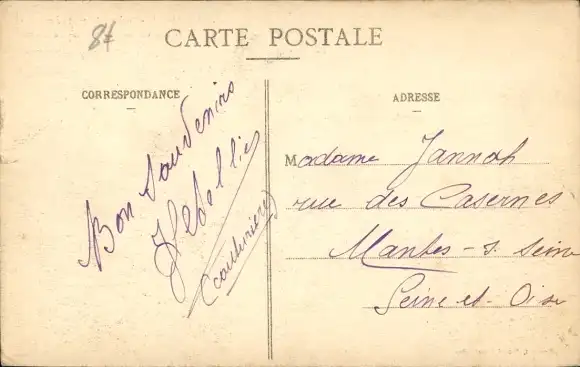 8f
CARTE POSTALE
CORRESPONDANCE
Bon Souvenirs
(couturière)
ADRESSE
Madame Jannoh
rue des Casernes
Mantes-s. Seine
Seine-et-Oise